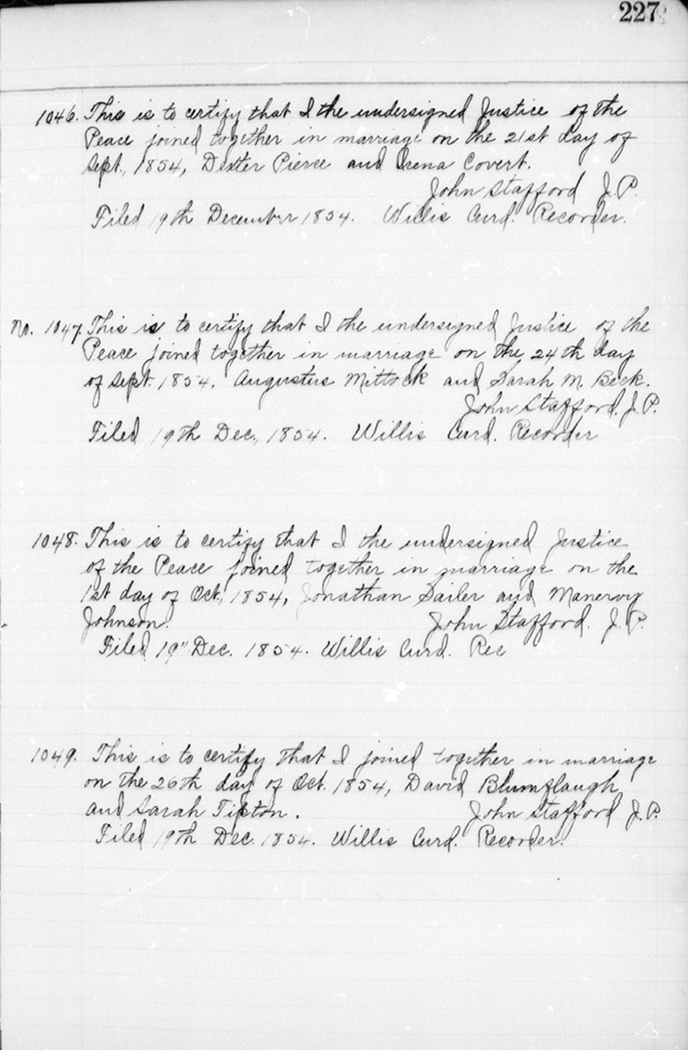 227
1046. This is to certify that I the undersigned Justice of the
Peace joined together in marriage on the 21st day of
Sept., 1854, Dexter Pierce and Irena Covert.
John Stafford J.P.
Filed 19th December 1854. Willis Curd. Recorder.
No. 1047. This is to certify that I the undersigned Justice of the
Peace joined together in marriage on the 24th day
of Sept. 1854, Augustus Mittock and Sarah M. Beck.
John Stafford. J.P.
Filed 19th Dec., 1854. Willis Curd. Recorder
1048. This is to certify that I the undersigned Justice
of the Peace joined together in marriage on the
1st day of Oct., 1854, Jonathan Sailer and Manervy
Johnson. John Stafford. J.P.
Filed 19" Dec. 1854. Willis Curd. Rec
1049. This is to certify that I joined together in marriage
on the 26th day of Oct. 1854, David Blumflaugh
and Sarah Tipton. John Stafford J.P.
Filed 19th Dec. 1854. Willis Curd. Recorder.